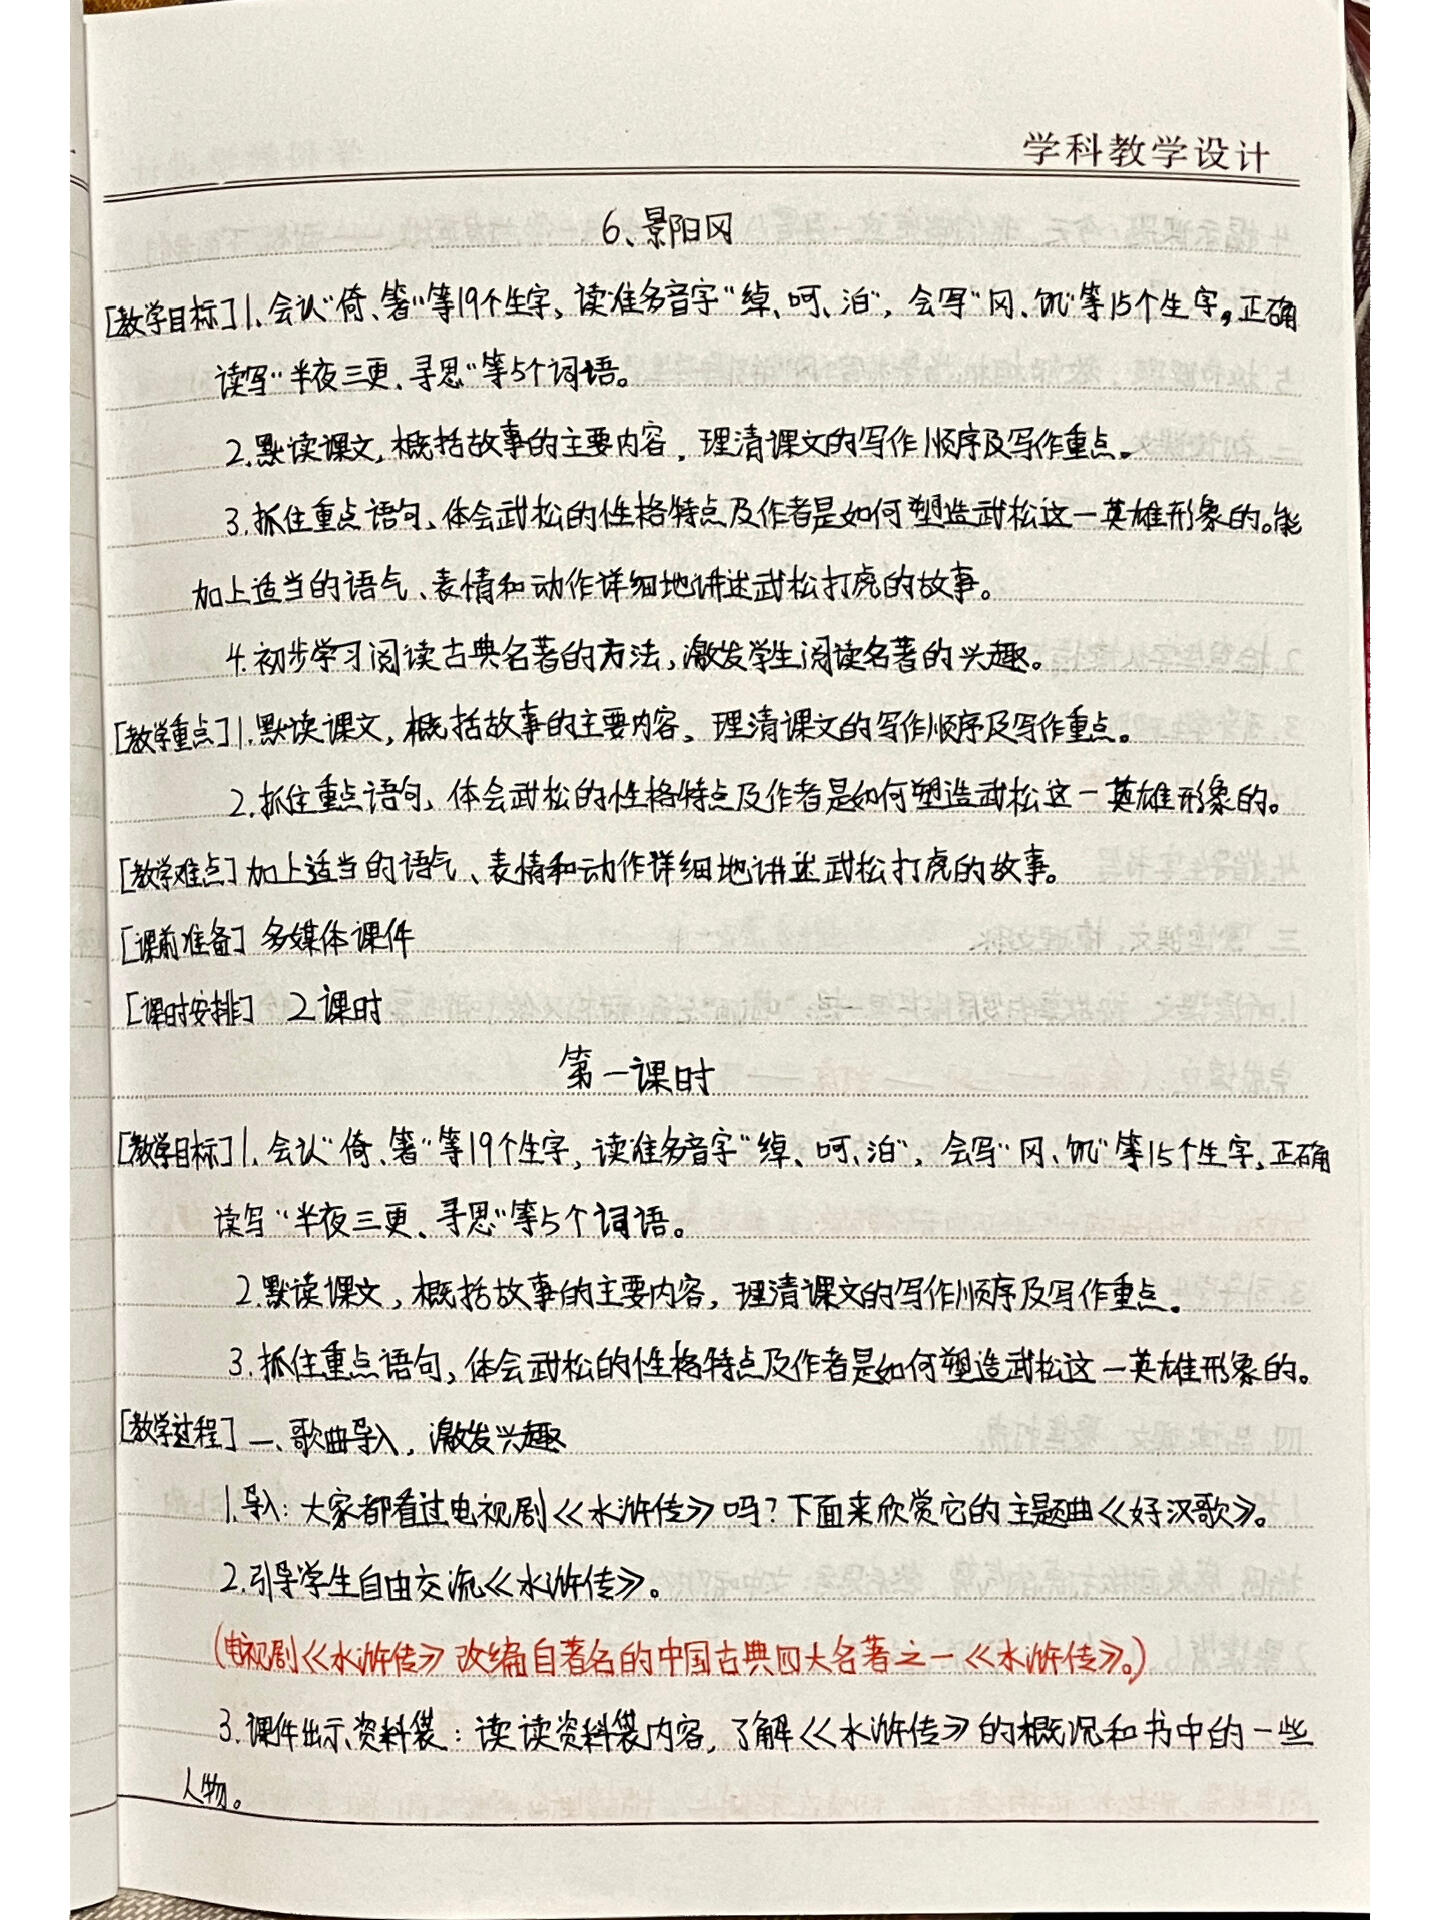 学科教学设计
6、景阳冈
[教学目标]1、会认“倚、箸”等19个生字，读准多音字“绰、呵、泊”，会写“冈、饥”等15个生字。正确
读写“半夜三更、寻思”等5个词语。
2.默读课文，概括故事的主要内容，理清课文的写作顺序及写作重点。
3.抓住重点语句，体会武松的性格特点及作者是如何塑造武松这一英雄形象的。能
加上适当的语气、表情和动作详细地讲述武松打虎的故事。
4.初步学习阅读古典名著的方法，激发学生阅读名著的兴趣。
[教学重点]1.默读课文，概括故事的主要内容，理清课文的写作顺序及写作重点。
2.抓住重点语句，体会武松的性格特点及作者是如何塑造武松这一英雄形象的。
[教学难点]加上适当的语气、表情和动作详细地讲述武松打虎的故事。
[课前准备] 多媒体课件
[课时安排] 2课时
第一课时
[教学目标]1、会认“倚、箸”等19个生字，读准多音字“绰、呵、泊”，会写“冈、饥”等15个生字，正确
读写“半夜三更、寻思”等5个词语。
2.默读课文，概括故事的主要内容，理清课文的写作顺序及写作重点。
3.抓住重点语句，体会武松的性格特点及作者是如何塑造武松这一英雄形象的。
[教学过程]一、歌曲导入，激发兴趣
1.导入：大家都看过电视剧《水浒传》吗？下面来欣赏它的主题曲《好汉歌》。
2.引导学生自由交流《水浒传》。
(电视剧《水浒传》改编自著名的中国古典四大名著之一《水浒传》。)
3.课件出示资料袋：读读资料袋内容，了解《水浒传》的概况和书中的一些
人物。